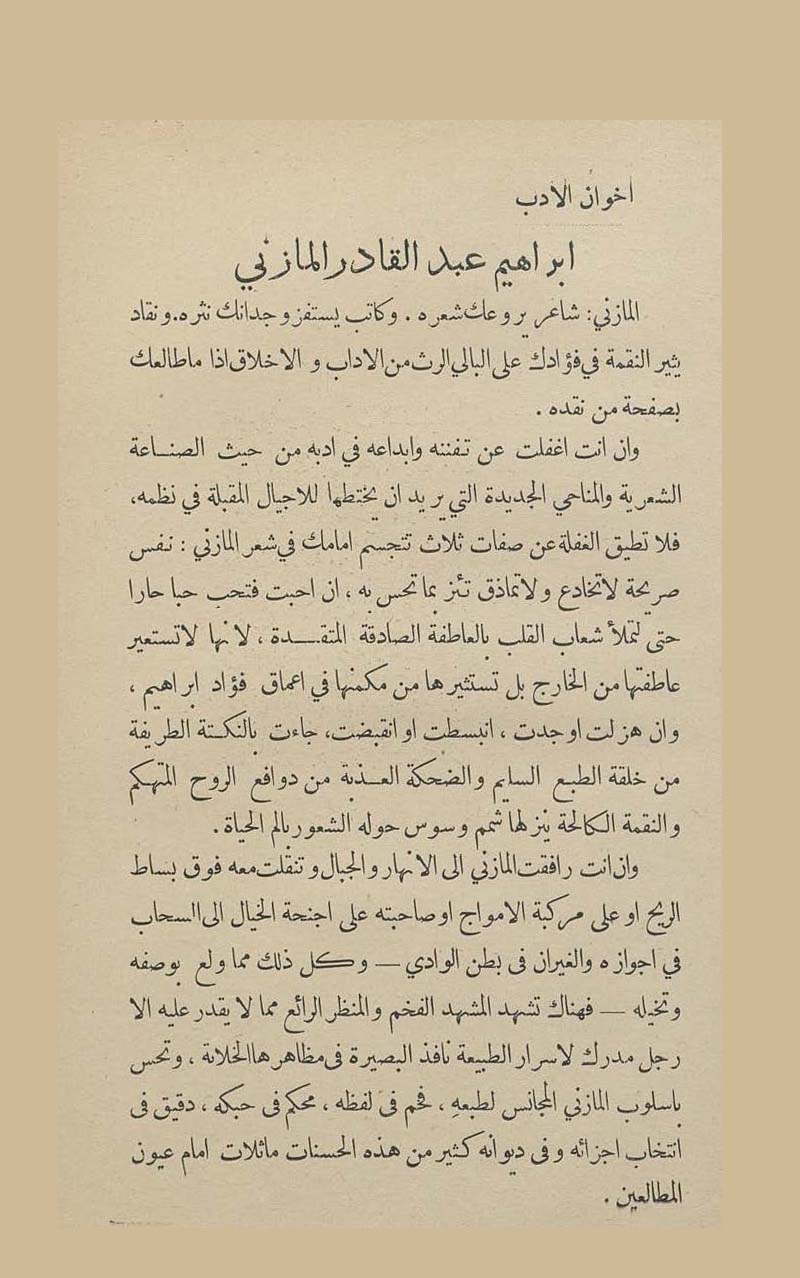 اخوان الادب
ابراهيم عبد القادر المازني
المازني: شاعر يروعك شعره. وكاتب يستفز وجدانك نثره. ونقاد
يثير النقمة في فؤادك على البالي الرث من الاداب و الاخلاق اذا ماطالعك
بصفحة من نقده.
وان انت اغفلت عن تفننه وابداعه في ادبه من حيث الصناعة
الشعرية والمناحي الجديدة التي يريد ان يختطها للاجيال المقبلة في نظمه،
فلا تطيق الغفلة عن صفات ثلاث تتجسم امامك في شعر المازني: نفس
صريحة لاتخادع ولاتماذق تئز بما تحس به، ان احبت فتحب حبا حارا
حتى لتملأ شعاب القلب بالعاطفة الصادقة المتقدة، لانها لاتستعير
عاطفتها من الخارج بل تستثيرها من مكمنها في اعماق فؤاد ابراهيم،
وان هزلت اوجدت، انبسطت او انقبضت، جاءت بالنكتة الطريفة
من خلقة الطبع السليم والضحكة العذبة من دوافع الروح المتهكم
والنقمة الكالحة ينزلها شمم وسوس حوله الشعور بالم الحياة.
وان انت رافقت المازني الى الانهار والجبال وتنقلت معه فوق بساط
الريح او على مركبة الامواج اوصاحبته على اجنحة الخيال الى السحاب
في اجوازه والغيران فى بطن الوادي — وكل ذلك مما ولع بوصفه
وتخيله — فهناك تشهد المشهد الفخم والمنظر الرائع مما لا يقدر عليه الا
رجل مدرك لاسرار الطبيعة نافذ البصيرة فى مظاهرها الخلابة، وتحس
باسلوب المازني المجانس لطبعهِ، فخم فى لفظه، محكم فى حبكه، دقيق فى
انتخاب اجزائه وفى ديوانه كثير من هذه الحسنات ماثلات امام عيون
المطالعين.